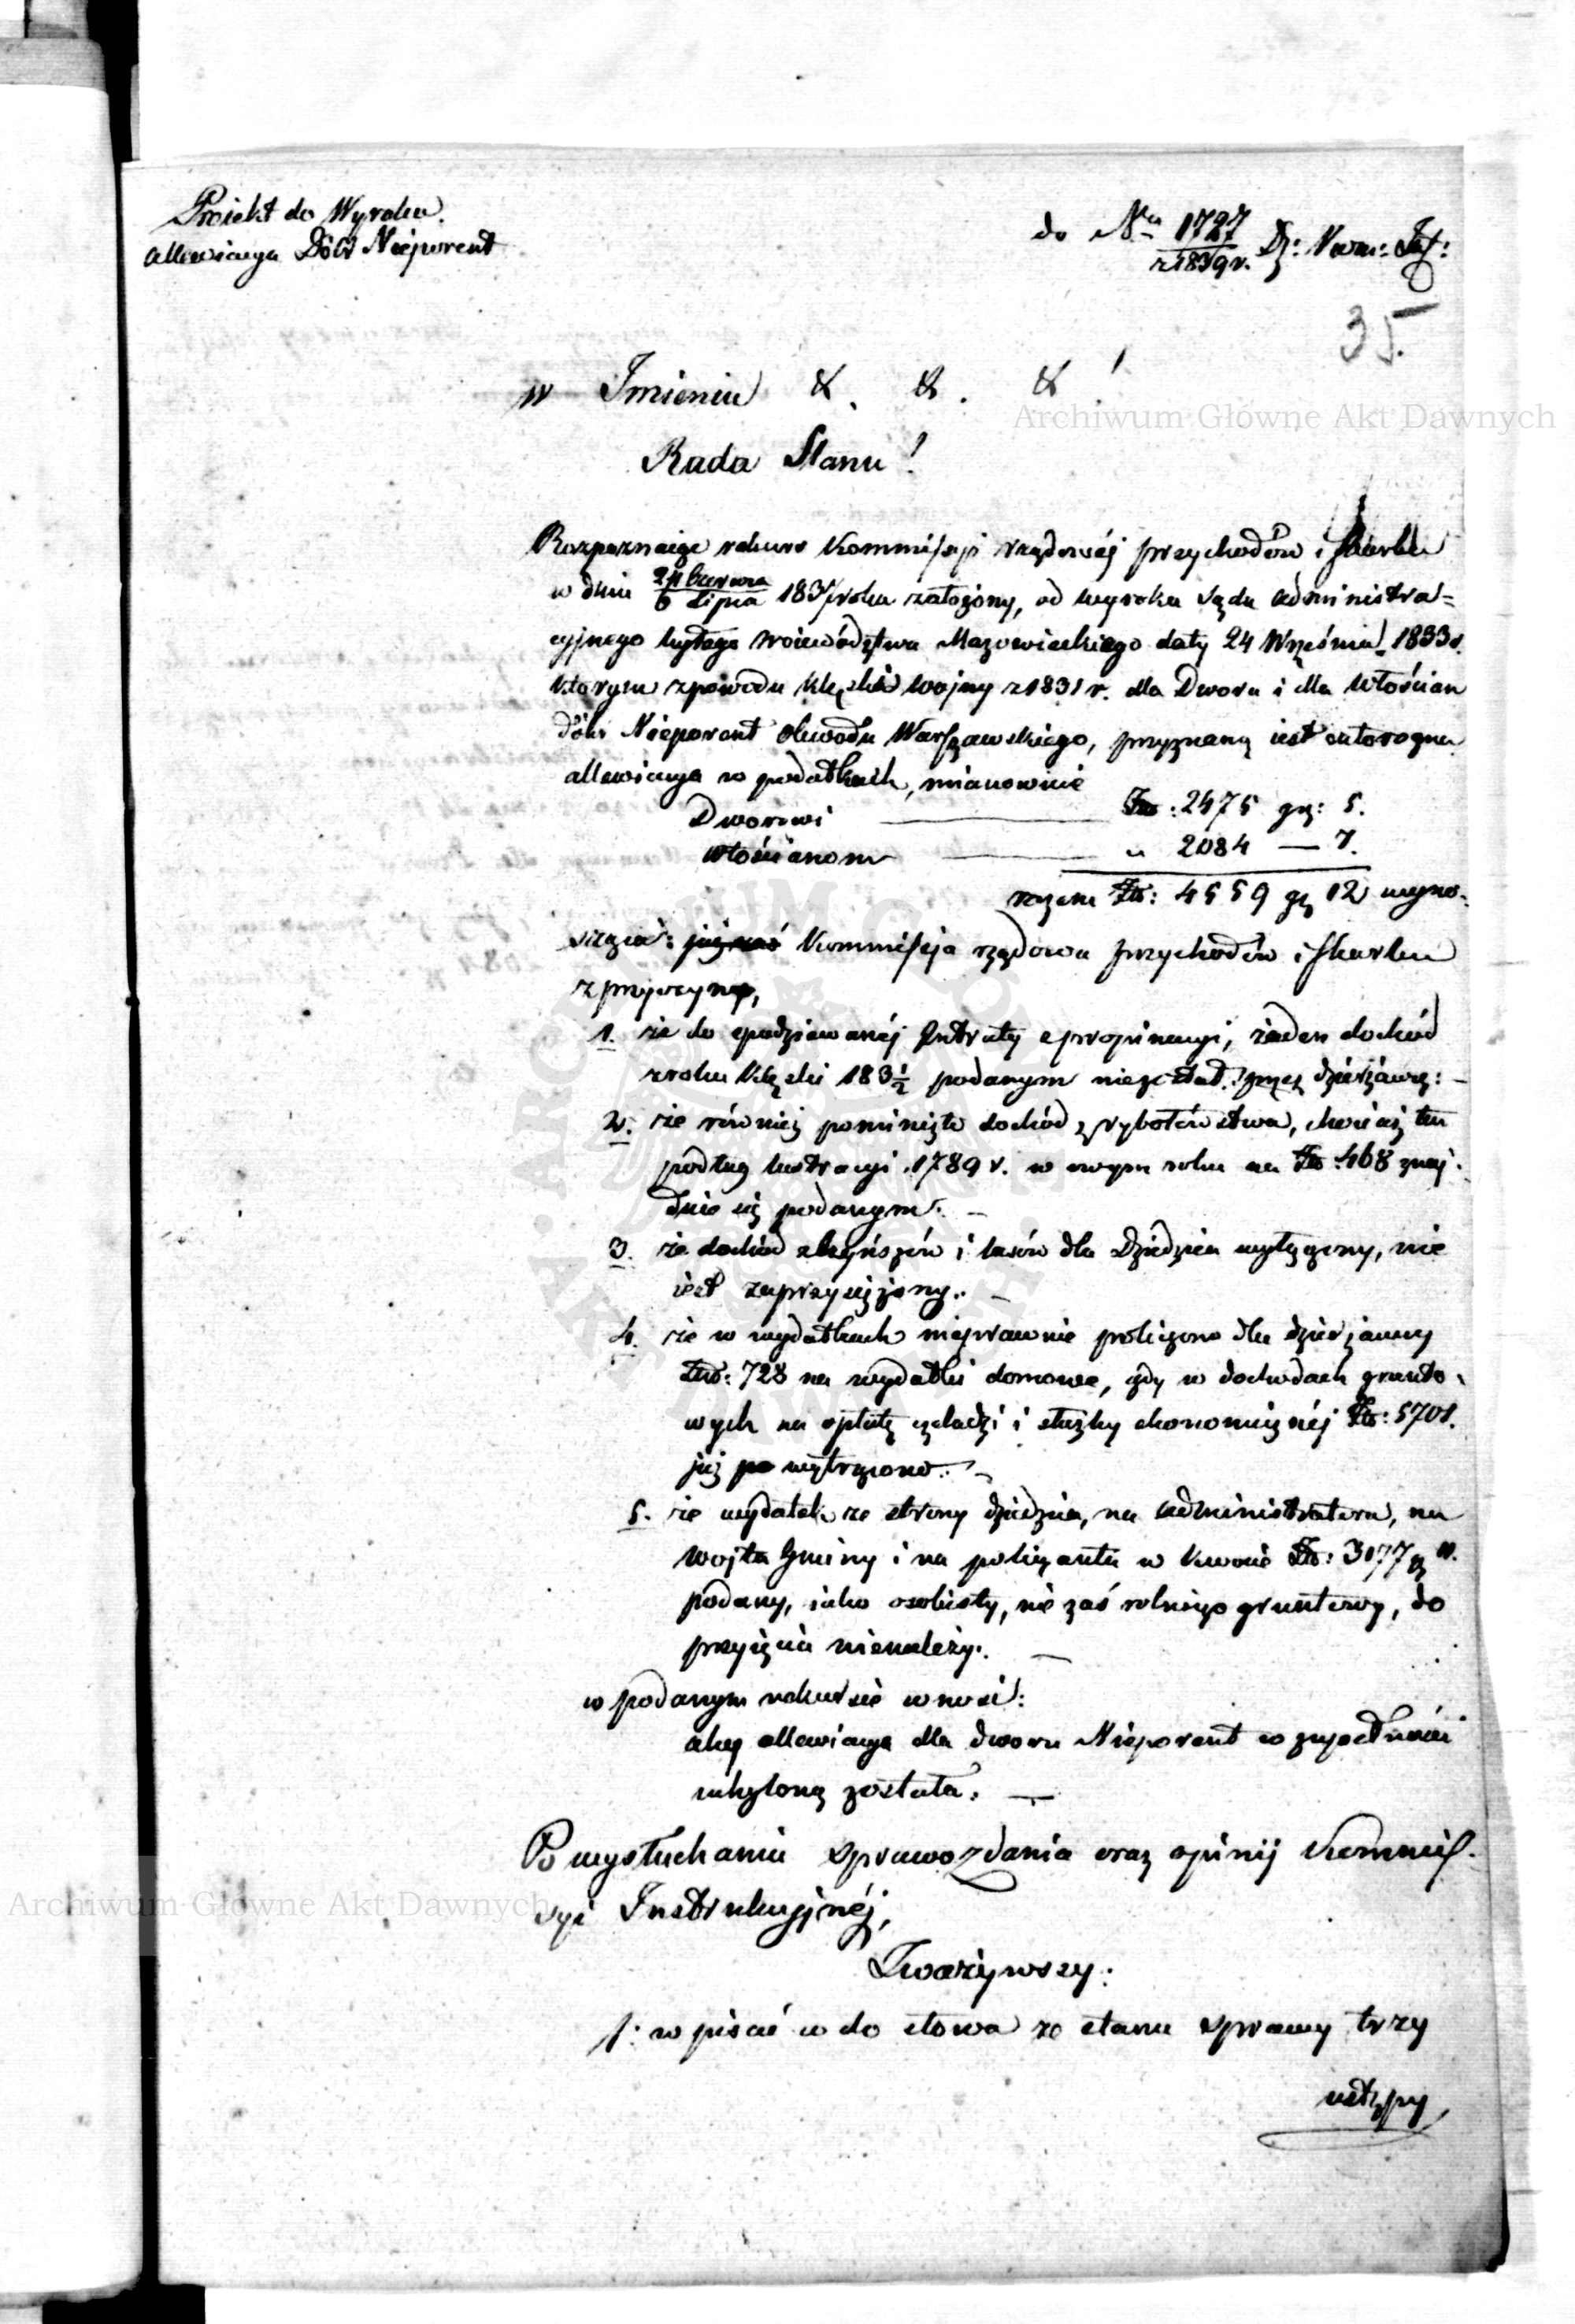 Proiekt do Wyroku.
allewiacya Dóbr Nieporent
do Nru 1727 Dz: Nwm: Inf:
z 1839 r.
35.
w Imieniu & . & . & . !
Archiwum Główne Akt Dawnych
Rada Stanu!
Rozpoznaiąc rekurs Kommissyi rządowéj przychodów i skarbu
w dniu 24 Czerwca / 6 Lipca 1837 roku założony, od wyroku sądu administra=
cyjnego byłego Województwa Mazowieckiego daty 24 Września 1833 r.
którym z powodu klęski wojny z 1831 r. dla Dworu i dla Włościan
dóbr Nieporent Obwodu Warszawskiego, przyznaną iest
allewiacya w podatkach, mianowicie
Dworowi Złp: 2475 gr: 5.
Włościanom " 2084 — 7.
razem Złp: 4559 gr 12 wyno-
Kommissya rządowa przychodów i skarbu
z przyczyny,
1. że do spodziewanéj Intraty z propinacyi, żaden dochód
z roku klęski 183 1/2 podanym nie został przez dzierżawcę: —
2. że również pominięto dochód z rybołówstwa, chociaż ten
podług lustracyi 1789 r. w owym roku na Złp: 468 znaj-
duie się podanym. —
3. że dochód z czynszów i lasów dla Dziedzica wyłączony, nie
iest zaprzysiężony. —
4. że w wydatkach nieprawnie policzono dla dzierżawcy
Złp: 728 na wydatki domowe, gdy w dochodach grunto-
wych na opłatę czeladzi i służby ekonomicznéj Złp: 5701.
już wytrącono. —
5. że wydatek ze strony dziedzica, na administratora, na
Wojta Gminy i na policyanta w kwocie Złp: 3077 g
podany, iako osobisty, nie zaś rolniczo gruntowy, do
przyięcia nienależy. —
w podanym rekursie wnosi:
aby allewiacya dla dworu Nieporent w zupełności
uchyloną została. —
Po wysłuchaniu sprawozdania oraz opinij Kommis-
syi Instrukcyjnéj,
Archiwum Główne Akt Dawnych
Zważywszy:
/: wpisać co do słowa ze stanu sprawy trzy
ustępy